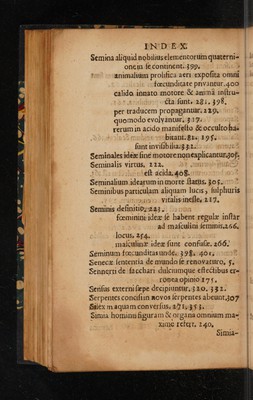 INDEX
Semina aliquid nobilius elementorum quaterni-
one in se continent. 399.
animalium prolifica aeri exposita omni
fœcunditate privantur. 400
calido innato motore & animâ instru-
cta sunt. 281. 398.
per traducem propagantur. 129.
quomodo evolvantur. 317.
rerum in acido manifesto & occulto ha-
bitant. 81. 195.
sunt invisibilia. 332.
Seminales ideæ sine motore non explicantur. 305.
Seminalis virtus. 122.
est acida. 408.
Seminalium idearum in morte status. 305.
Seminibus particulam aliquam lucis, sulphuris
vitalis inesse. 217.
Seminis definitio. 223.
fœminini ideæ se habent regulæ instar
ad masculini seminis. 266.
locus. 254.
masculinæ ideæ sunt confusæ. 266.
Seminum fœcunditas unde. 398. 401.
Senecæ sententia de mundo se renovaturo. 5.
Sennerti de sacchari dulciumque effectibus er-
ronea opinio 175.
Sensus externi sæpe decipiuntur. 320. 352.
Serpentes concisi in novos serpentes abeunt. 307
Silex in aquam conversus. 271. 353.
Simia hominis figuram & organa omnium ma-
xime refert. 240.
Simia-